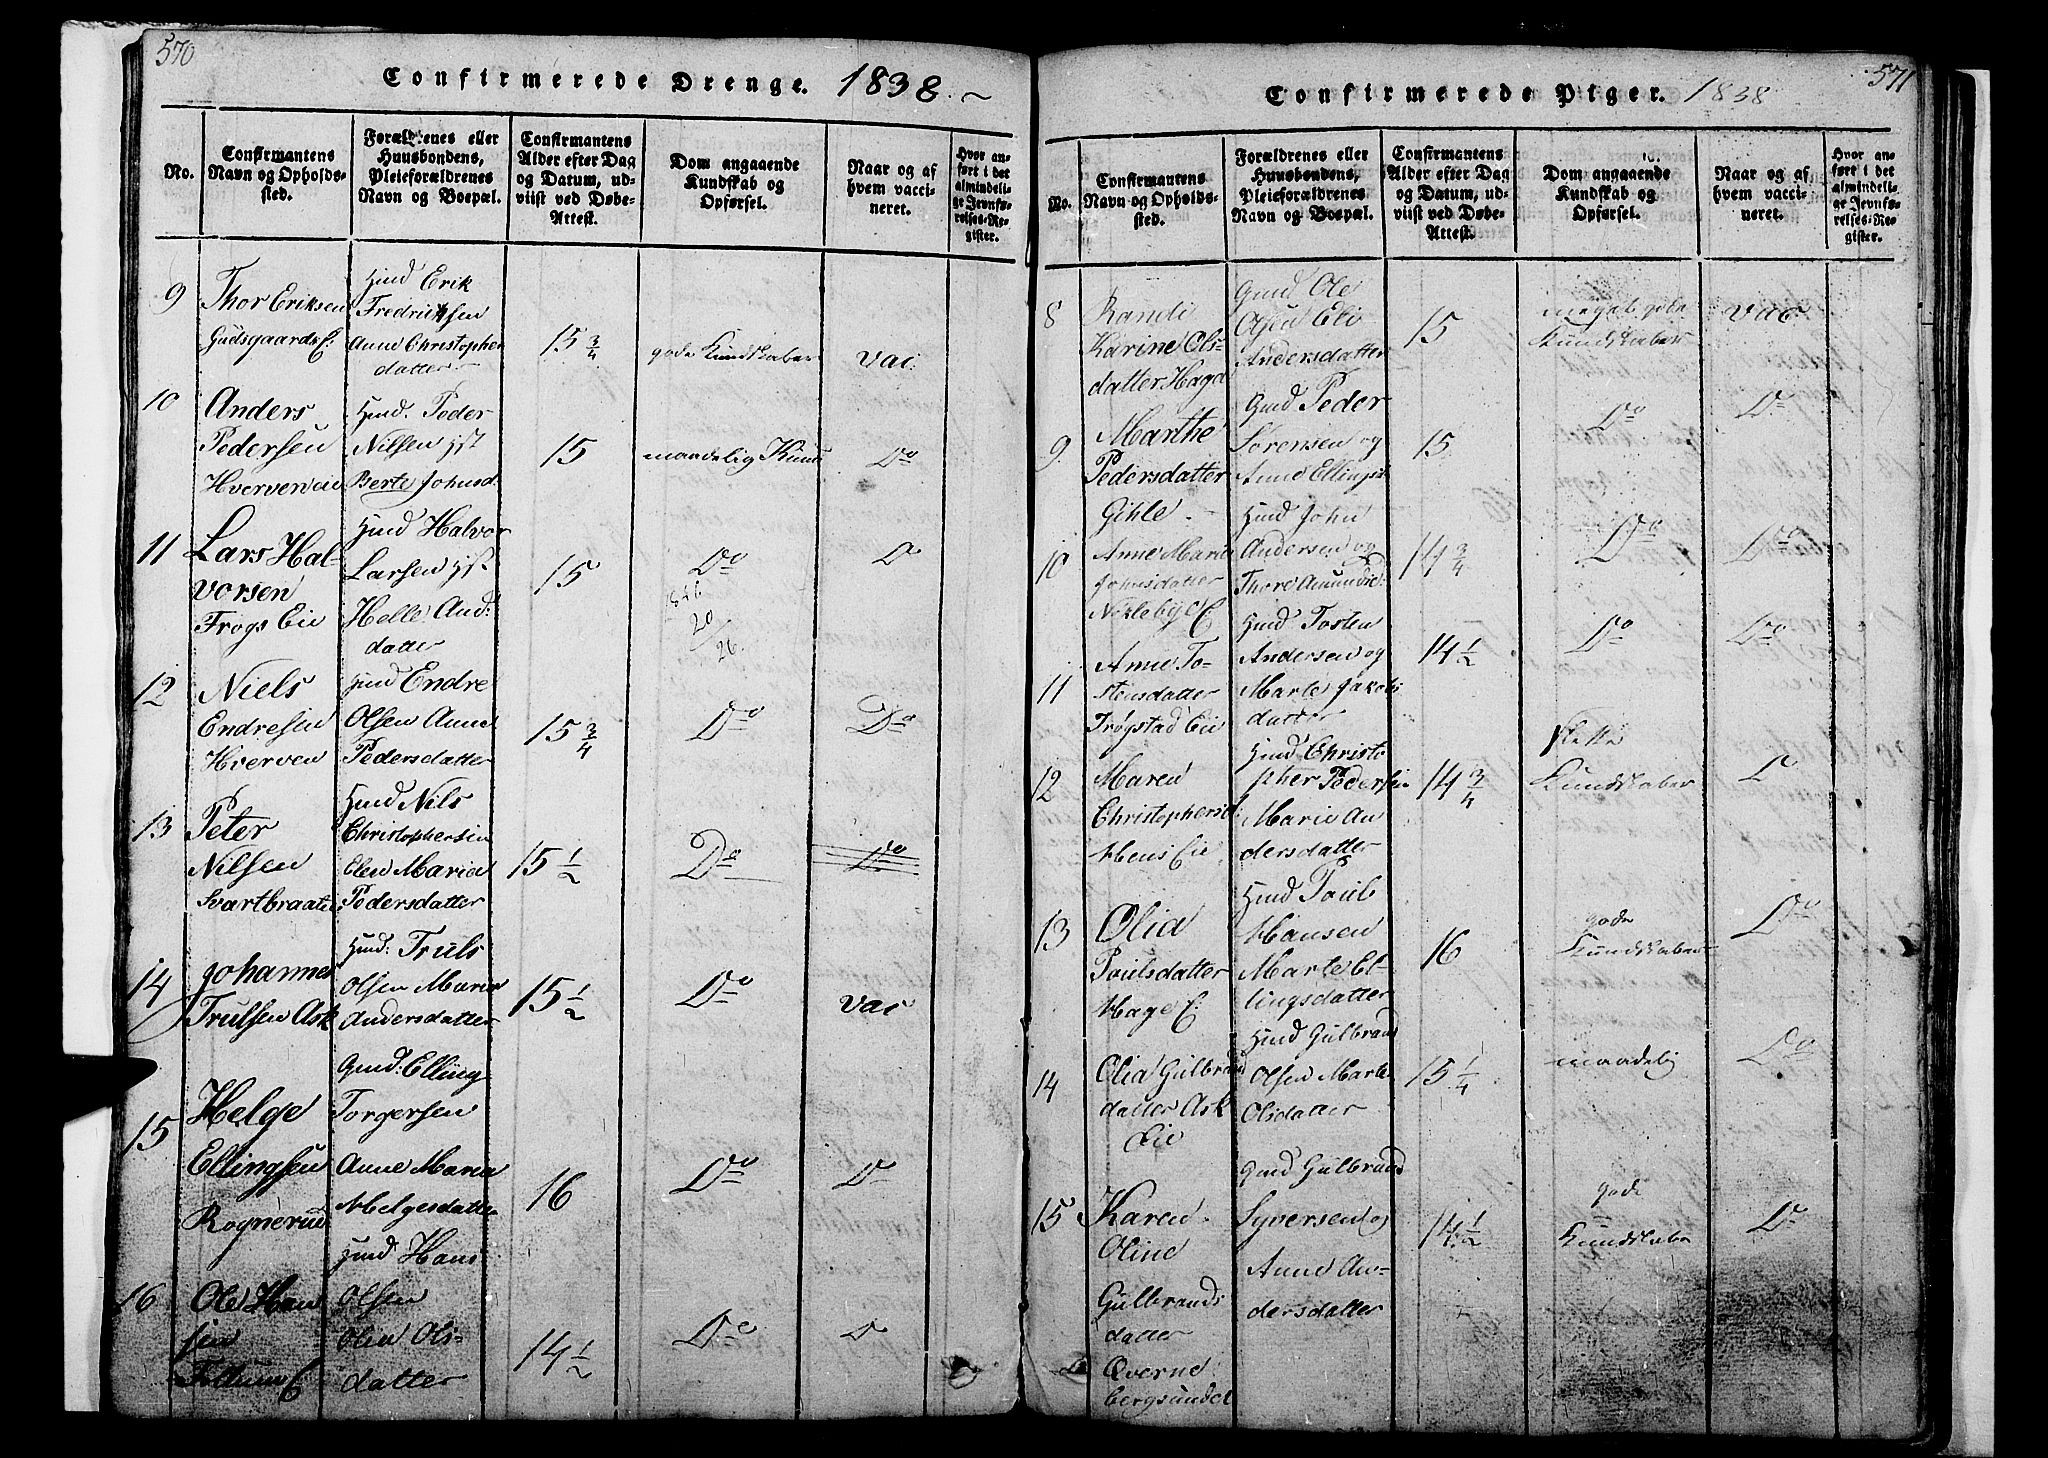 570
Confirmerede Drenge. 1838.
No.
Confirmantens
Navn og Opholds-
sted.
Forældrenes eller
Huusbondens,
Pleieforældrenes
Navn og Boepæl.
Confirmantens
Alder efter Dag
og Datum, ud-
viist ved Døbe-
Attest.
Dom angaaende
Kundskab og
Opførsel.
Naar og af
hvem vacci-
neret.
Hvor an-
ført i det
almindeli-
ge Jevnfø-
relses-Re-
gister.
9
Thor Eriksen
Gudsgaards E.
Hmd Erik
Fredriksen
Anne Christopher
datter
15 3/4
gode Kundskaber
vac
10
Anders
Pedersen
Hverven eie
Hmd. Peder
Nilsen
Berte Johnsd.
15
maadelig Kund
Do
11
Lars Hal-
vorsen
Frogs Eie
Hmd Halvor
Larsen
Helle And:
datter
15
Do
1846
20
26.
D
12
Niels
Endresen
Hverven
Hmd Endre
Olsen Anne
Pedersdatter
15 3/4
Do
Do
13
Peter
Nilsen
Svartbraaten
Hmd Nils
Christophersen
Elen Maria
Pedersdatter
15 1/2
Do
Do
14
Johannes
Trulsen Ask
Hmd: Truls
Olsen Maria
Andersdatter
15 1/2
Do
vac
15
Helge
Ellingsen
Rognerud
Gmd: Elling
Torgersen
Anne Maria
Helgesdatter
16
Do
D
16
Ole Han
sen
Follum E
Hmd Hans
Olsen
Olia Ols-
datter
14 1/2
Do
D
571
Confirmerede Piger. 1838
No.
Confirmantens
Navn og Opholds-
sted.
Forældrenes eller
Huusbondens,
Pleieforældrenes
Navn og Boepæl.
Confirmantens
Alder efter Dag
og Datum, ud-
viist ved Døbe-
Attest.
Dom angaaende
Kundskab og
Opførsel.
Naar og af
hvem vacci-
neret.
Hvor an-
ført i det
almindeli-
ge Jevnfø-
relses-Re-
gister.
8
Randi
Karine Ols-
datter Haga
Gmd Ole
Olsen Eli
Andersdatter
15
meget gode
Kundskaber
vac
9
Marthe
Pedersdatter
Gihle
Gmd Peder
Sörensen og
Anne Ellingsd
15
Do
D
10
Anne Maria
Johnsdatter
Nikleby E
Hmd John
Andersen og
Thore Amundsd:
14 3/4
Do
Do
11
Anne To-
stensdatter
Trøgstad Eie
Hmd Tosten
Andersen og
Marte Jakobs
datter
14 1/2
Do
Do
12
Maren
Christophersd
Hens Eie
Hmd Christo
pher Pedersen
Marie An
dersdatter
14 3/4
slette
Kundskaber
D
13
Olia
Paulsdatter
Hage E
Hmd Paul
Hansen
Marte El-
lingsdatter
16
gode
Kundskaber
Do
14
Olia Gulbrand
datter Ask
Eie
Hmd Gulbrand
Olsen Marte
Olsdatter
15 1/4
maadelig
Do
15
Karen
Oline
Gulbrands
datter
Overne
bergsundet
Gmd Gulbrand
Syversen og
Anne An-
dersdatter
14 1/2
gode
Kundskaber
D